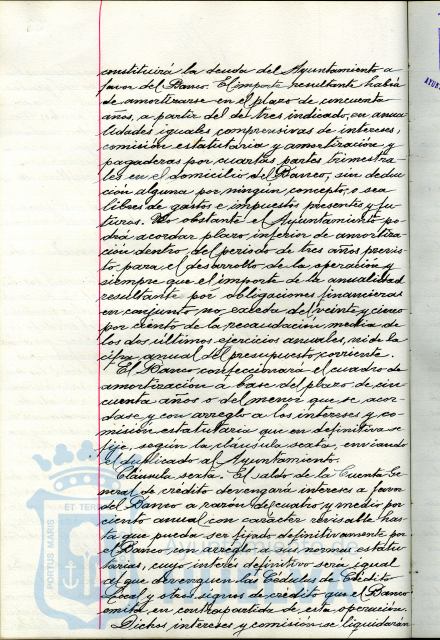 constituirá la deuda del Ayuntamiento a
favor del Banco. El importe resultante habrá
de amortizarse en el plazo de cincuenta
años, a partir del de tres indicado, en anua-
lidades iguales comprensivas de intereses,
comisión estatutaria y amortización y
pagaderas por cuartas partes trimestra-
les en el domicilio del Banco, sin deduc-
ción alguna por ningún concepto, o sea
libres de gastos e impuestos presentes y fu-
turos. No obstante el Ayuntamiento po-
drá acordar plazo inferior de amortiza-
ción dentro del periodo de tres años previs-
to para el desarrollo de la operación y
siempre que el importe de la anualidad
resultante por obligaciones financieras
en conjunto no exceda del veinte y cinco
por ciento de la recaudación media de
los dos últimos ejercicios anuales, ni de la
cifra anual del presupuesto corriente.
El Banco confeccionará el cuadro de
amortización a base del plazo de cin-
cuenta años o del menor que se acor-
dase y con arreglo a los intereses y co-
misión estatutaria que en definitiva se
fije, según la cláusula sexta, enviando
el duplicado al Ayuntamiento.
Cláusula sexta. El saldo de la Cuenta Ge-
neral de crédito devengará intereses a favor
del Banco a razón de cuatro y medio por
ciento anual con carácter revisable has-
ta que pueda ser fijado definitivamente por
el Banco con arreglo a sus normas estatu-
tarias, cuyo interés definitivo será igual
al que devenguen las Cédulas de Crédito
Local y otros signos de crédito que el Banco
emita en contrapartida de esta operación.
Dichos intereses y comisión se liquidarán
PORTUS MARIS
ET TER
Ayuntamiento de